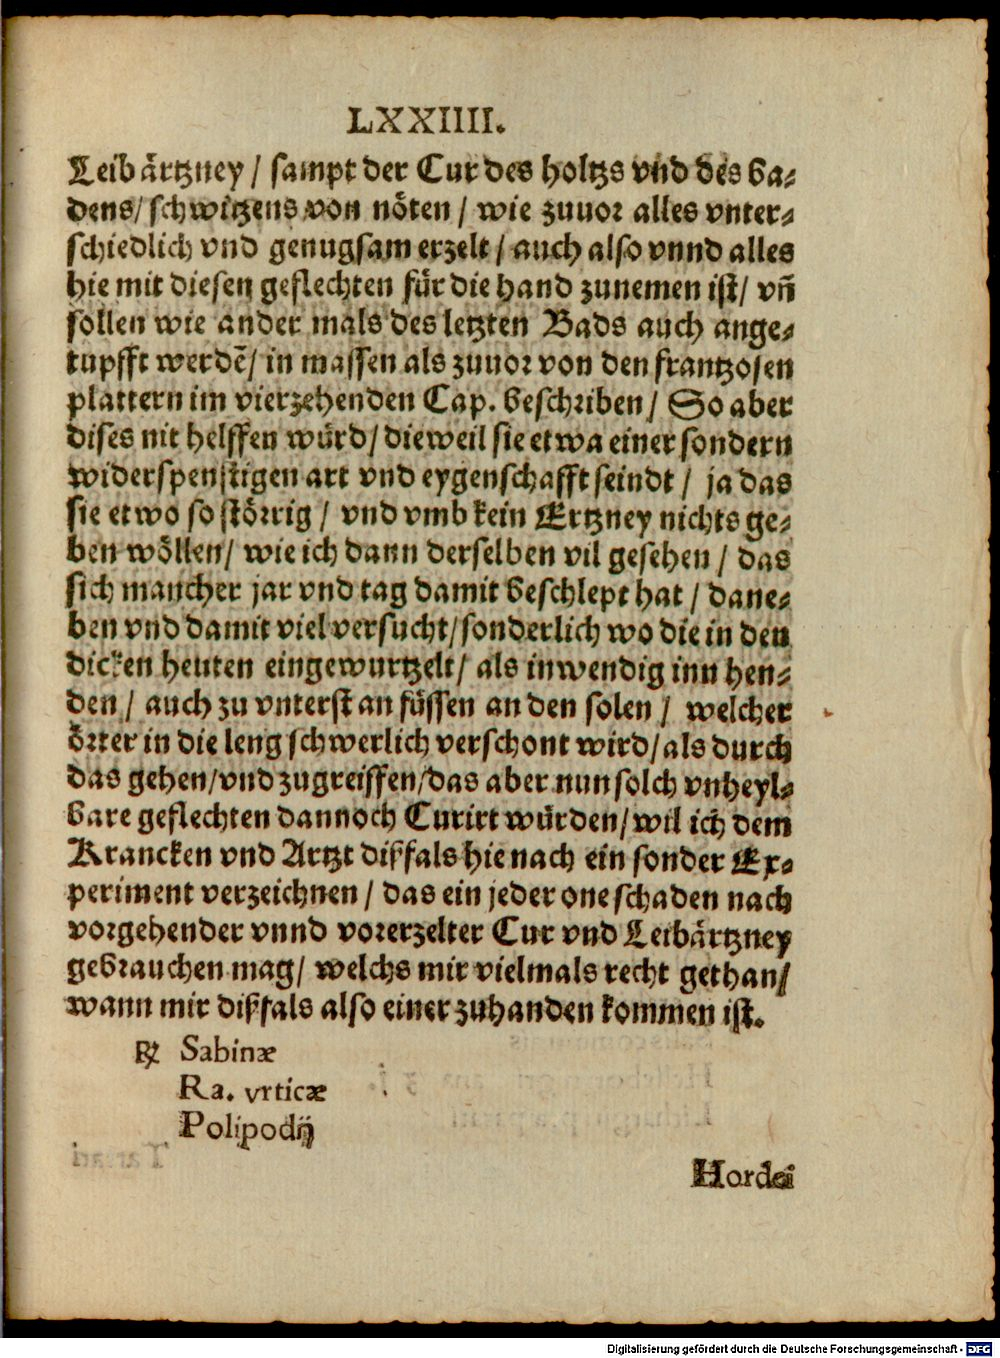 LXXIIII.
Leib ärtzney / sampt der Cur des holtzs vnd des ba-
dens / schwitzens von nöten / wie zuuor alles vnter-
schiedlich vnd genugsam erzelt / auch also vnnd alles
hie mit diesen geflechten für die hand zunemen ist / vñ
sollen wie ander mals des letzten Bads auch ange-
tupfft werdẽ / in massen als zuuor von den frantzosen
plattern im vierzehenden Cap. beschriben / So aber
dises nit helffen würd / dieweil sie etwa einer sondern
widerspenstigen art vnd eygenschafft seindt / ja das
sie etwo so störrig / vnd vmb kein Ertzney nichts ge-
ben wöllen / wie ich dann derselben vil gesehen / das
sich mancher jar vnd tag damit beschlept hat / dane-
ben vnd damit viel versucht / sonderlich wo die in den
dicken heuten eingewurtzelt / als inwendig inn hen-
den / auch zu vnterst an füssen an den solen / welcher
örter in die leng schwerlich verschont wird / als durch
das gehen / vnd zugreiffen / das aber nun solch vnheyl-
bare geflechten dannoch Curirt würden / wil ich dem
Krancken vnd Artzt dißfals hie nach ein sonder Ex-
periment verzeichnen / das ein jeder one schaden nach
vorgehender vnnd vorerzelter Cur vnd Leibärtzney
gebrauchen mag / welchs mir vielmals recht gethan /
wann mir dißfals also einer zuhanden kommen ist.
℞ Sabinæ
Ra. vrticæ
Polipodij
Hordei
Digitalisierung gefördert durch die Deutsche Forschungsgemeinschaft - DFG